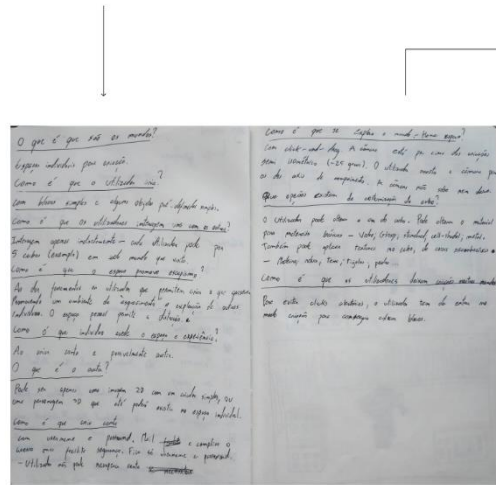 O que é que são os mundos?
Espaços individuais para criação.
Como é que o utilizador cria?
Com blocos simples e alguns objetos pré-definidos simples.
Como é que os utilizadores interagem uns com os outros?
Interagem apenas indiretamente – cada utilizador pode pôr
5 cubos (exemplo) em cada mundo que visita.
Como é que o espaço promove escapismo?
Ao dar ferramentas ao utilizador que permitem criar o que quiserem
promovendo um ambiente de e exploração de outros
indivíduos. O espaço pessoal permite a
Como é que indivíduo acede o espaço e experiência?
Ao criar conta e possivelmente avatar.
O que é o avatar?
Pode ser apenas uma imagem 2D com um simples, ou
uma personagem 3D que até poderá existir no espaço individual.
Como é que cria conta
com username e password. Mail e complica o
acesso mas facilita segurança. Fica só username e password.
- Utilizador não pode recuperar conta
Como é que se explora o mundo – Home espaço?
Com click-and-drag. A câmara está por cima das criações
semi isométrico (~25 graus). O utilizador a câmara para
os do cubo de comprimento. A câmara não roda nem
Que opções existem de customização do cubo?
O utilizador pode alterar a cor do cubo. Pode alterar o material
para materiais básicos – vidro, standard, cell-shaded, metal.
Também pode aplicar texturas ao cubo, de coisas
– Madeira, pedra, terra, tijolos,
Como é que os utilizadores deixam criações noutros mundos?
Para evitar clicks aleatórios, o utilizador tem de entrar no
modo criação para começar a colocar blocos.